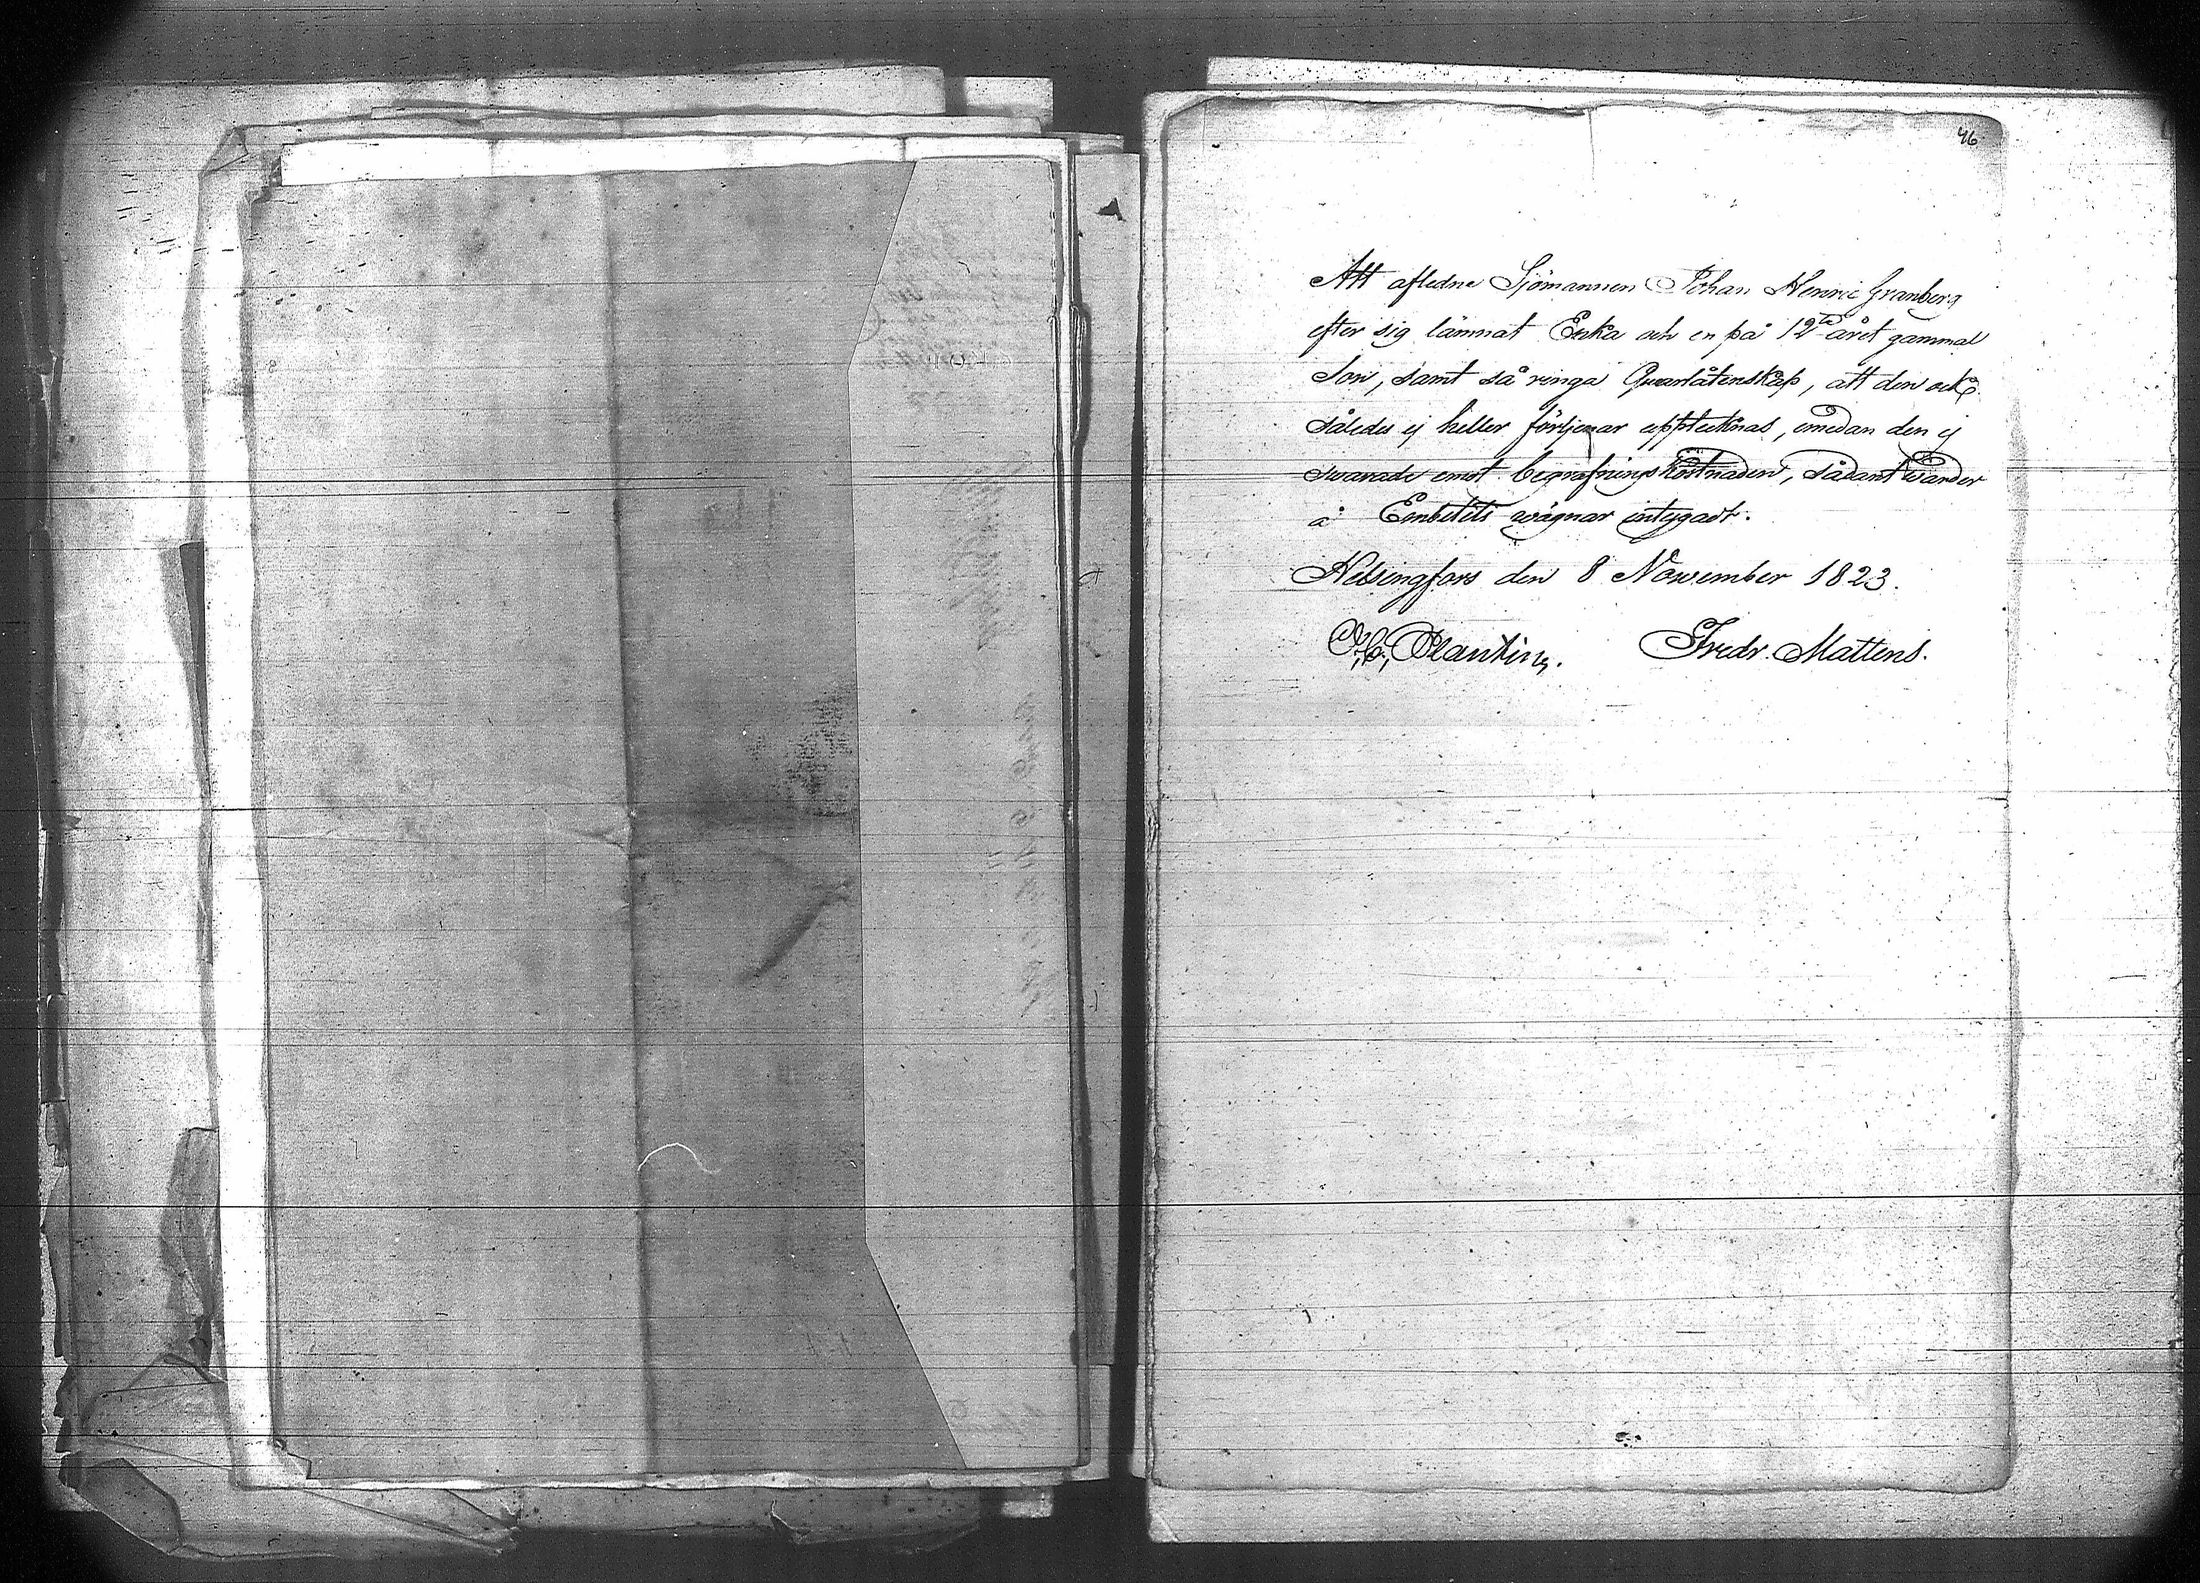 46
Att aflidne Sjömannen Johan Henric Granberg
efter sig lämnat Enka och en på 12te året gammal
Son, samt så ringa Qvarlåtenskap, att den ock
således ej heller förtjenar uppteknas, emedan den ej
swarade emot begrafningskostnaden, sådant warder
å Embetets wägnar intygadt.
Helsingfors den 8 November 1823.
Fredr. Mattens.